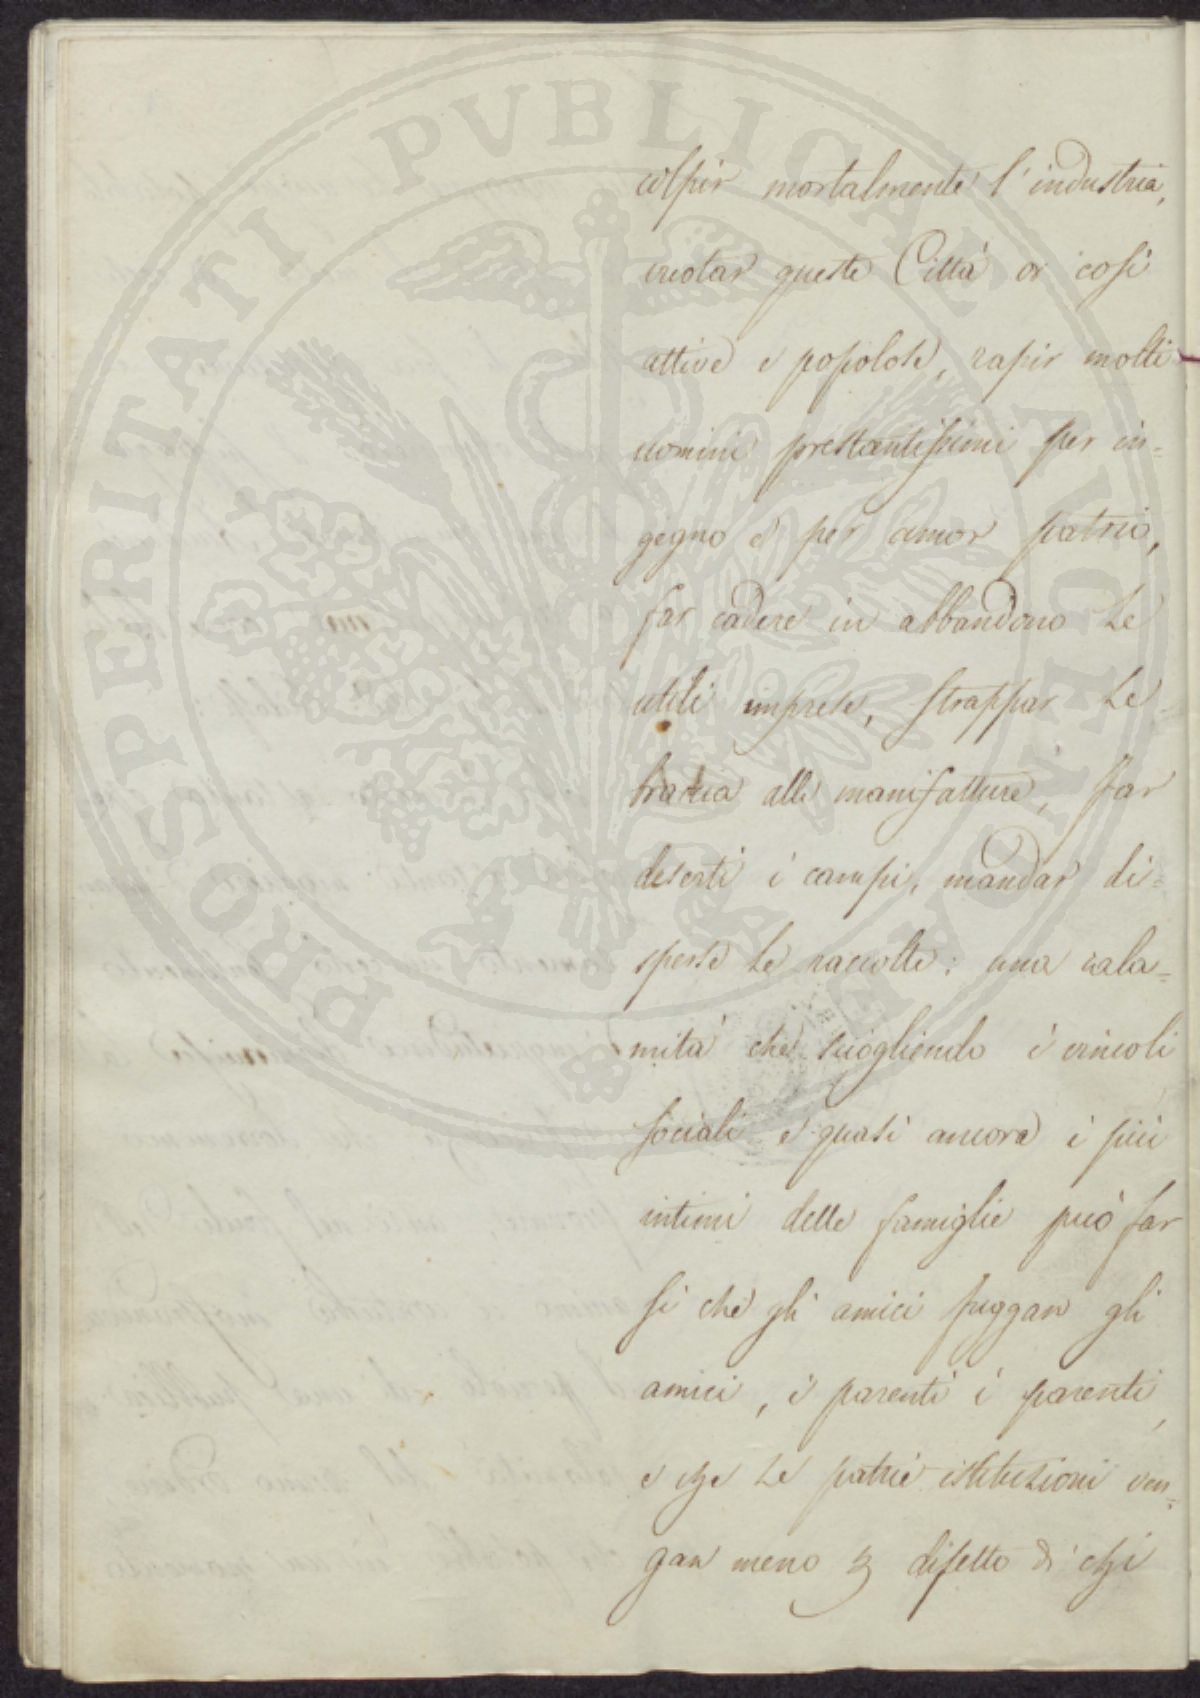 PROSPERITATI PVBLICAE AVGENDAE
colpir mortalmente l'industria,
vuotar queste Città or così
attive e popolose, rapir molti
uomini prestantissimi per in=
gegno e per amor patrio,
far cadere in abbandono le
utili imprese, strappar le
braccia alle manifatture, far
deserti i campi, mandar di=
sperse le raccolte: una cala=
mità che sciogliendo i vincoli
sociali e quasi ancora i più
intimi delle famiglie può far
sì che gli amici fuggan gli
amici, i parenti i parenti,
e che le patrie istituzioni ven=
gan meno difetto di chi